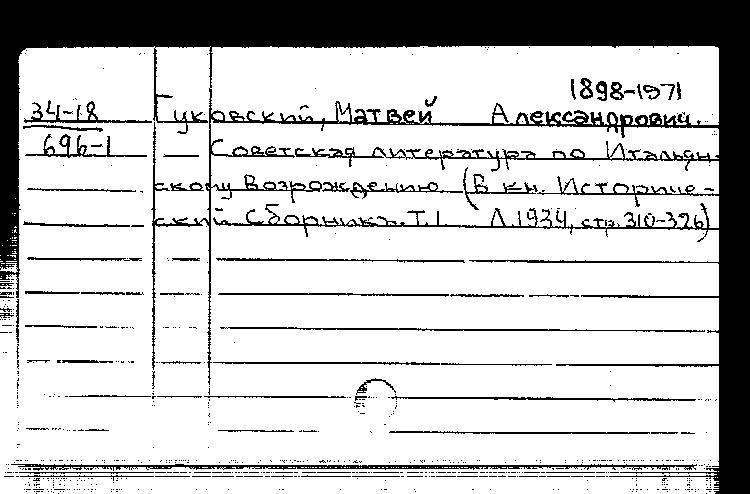 1898-1971
34-18 Гуковский, Матвей Александрович.
696-1 Советская литература по Итальян-
скому Возрождению (В кн. Историче-
ский Сборникъ. Т.1 Л.1934, стр. 310-326)